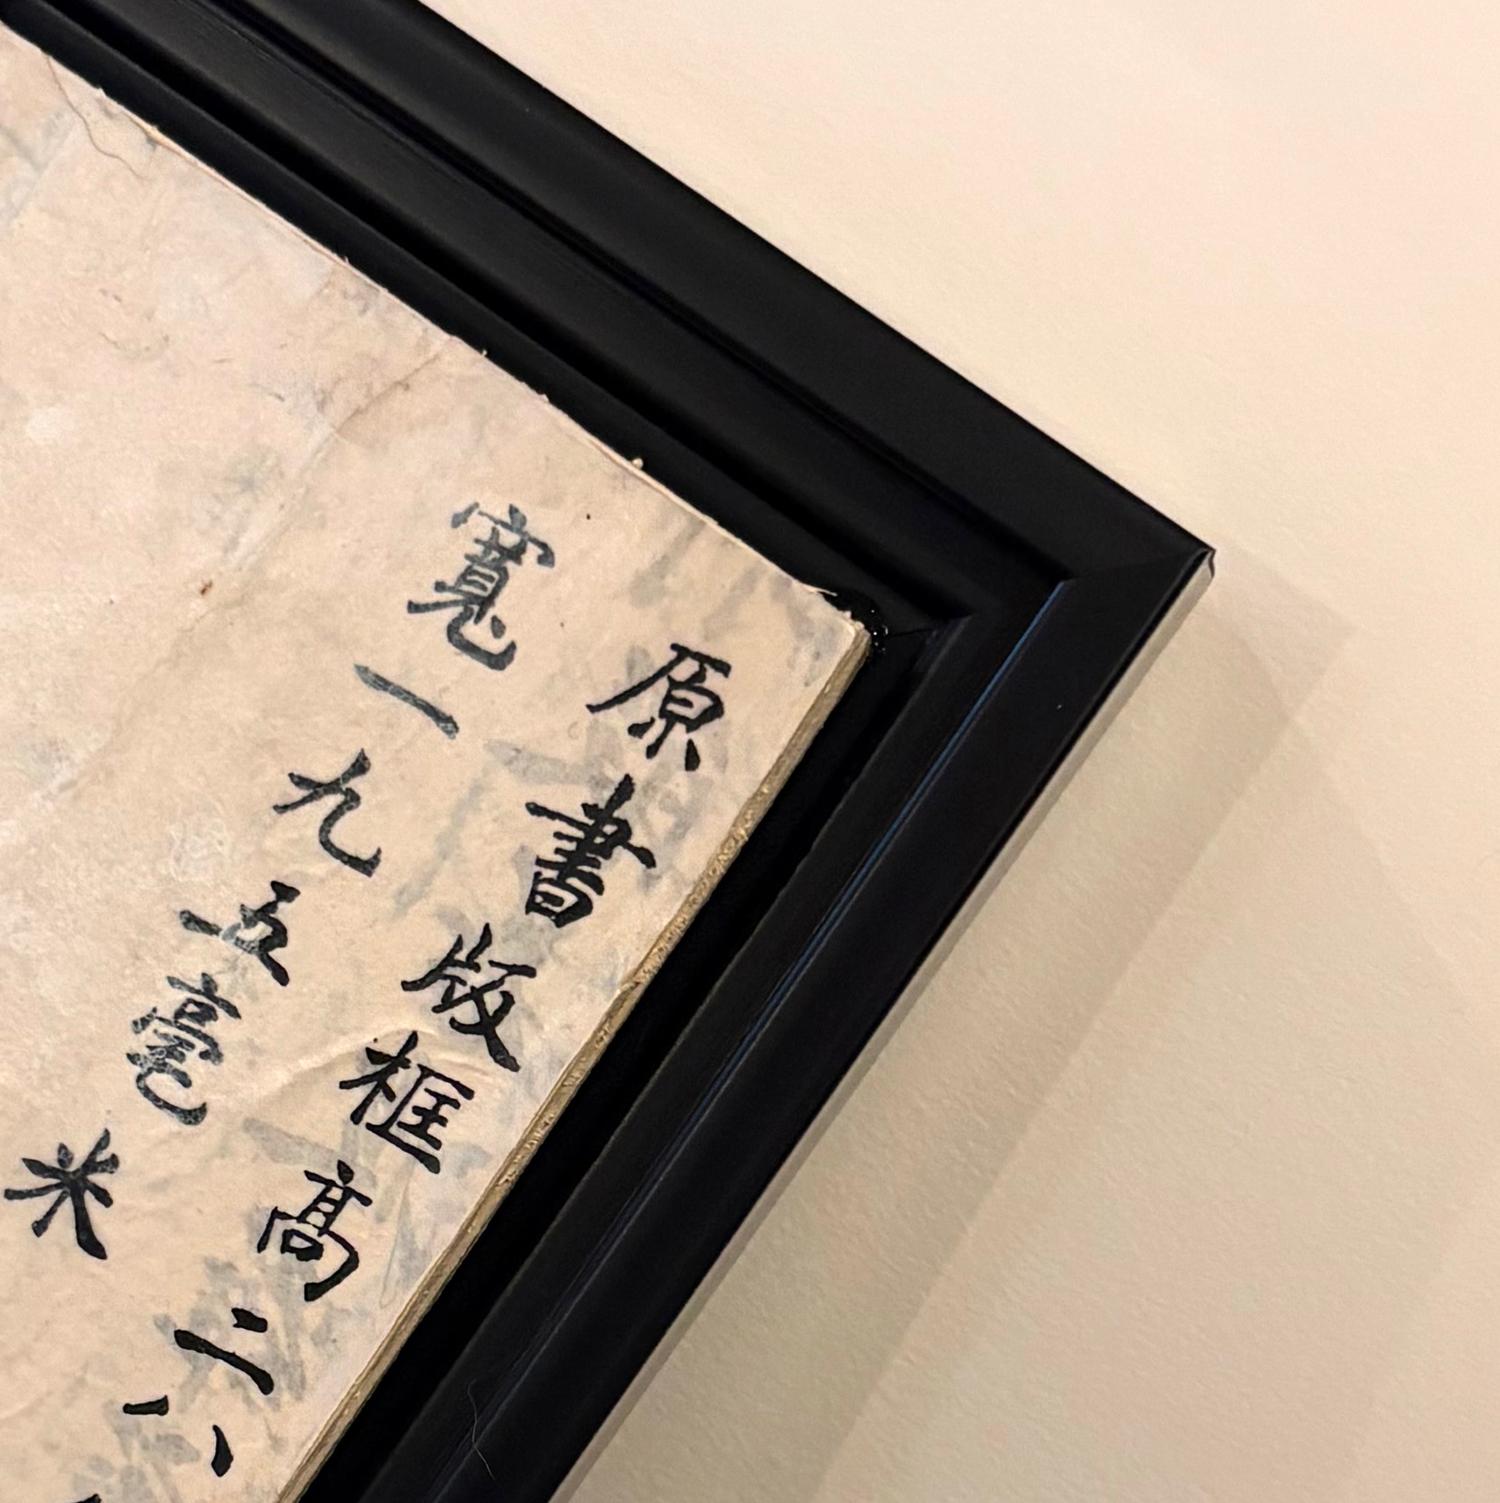 原書版框高二八
寬一九五毫米